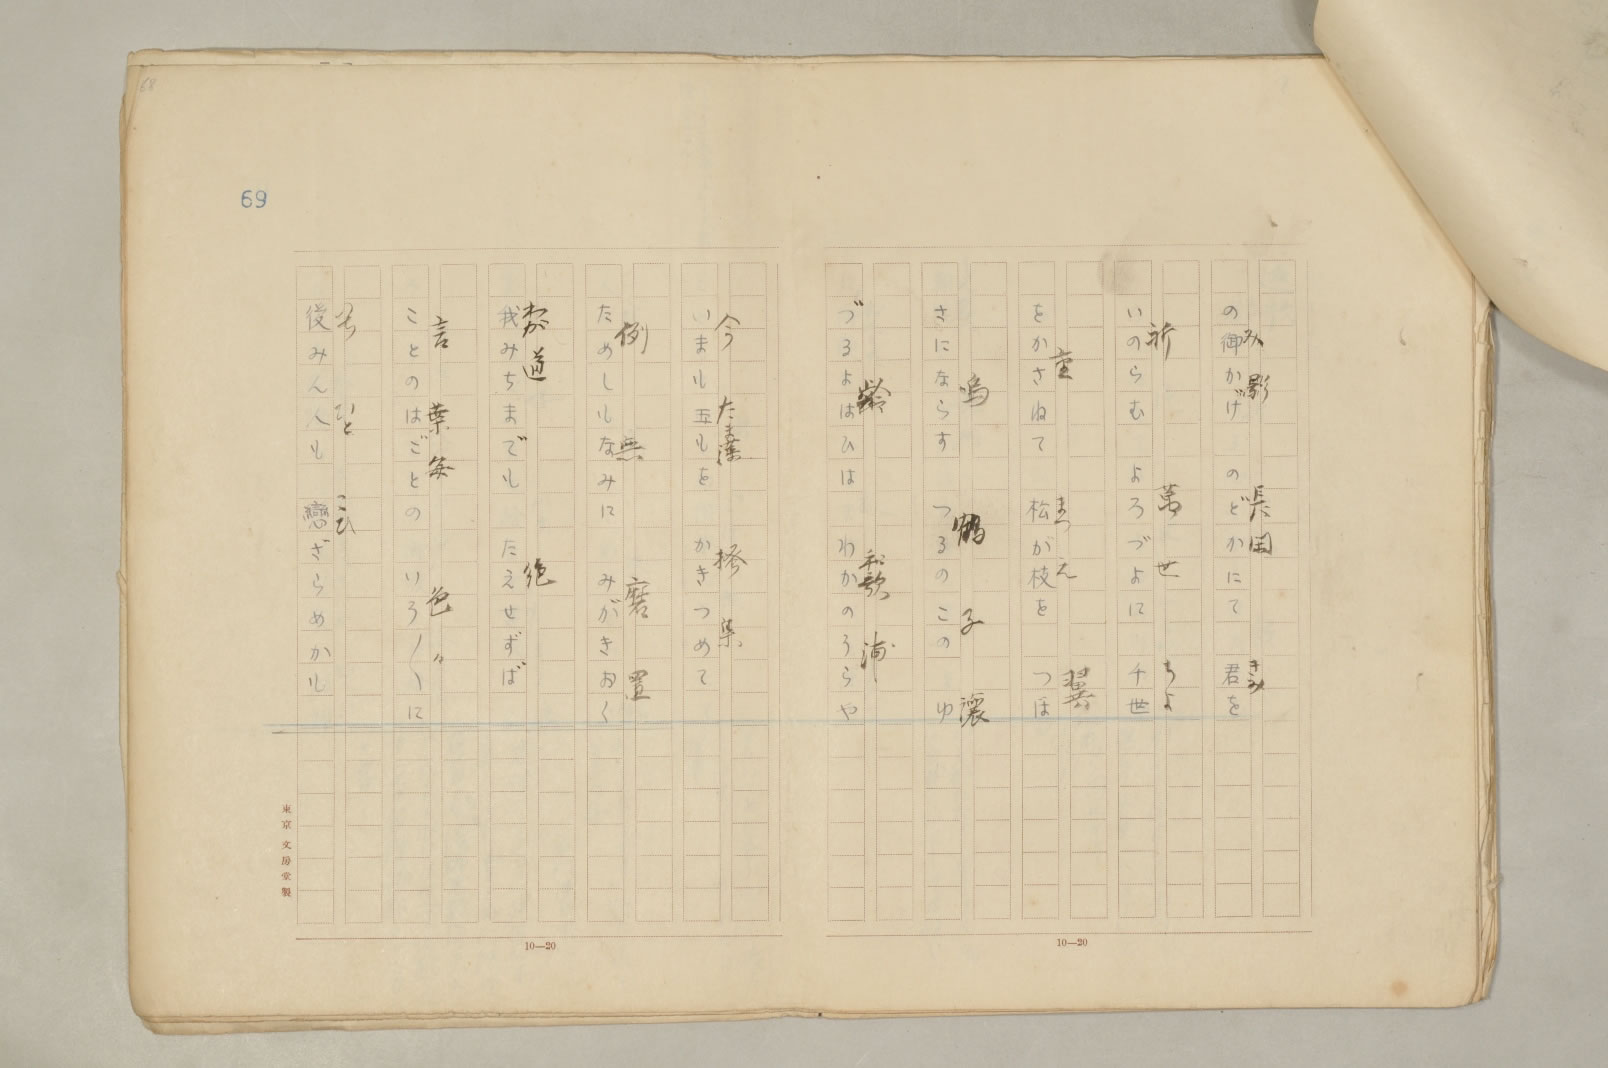 の御かげ のどかにて 君を
み 影 長閑 きみ
いのらむ よろづよに 千世
祈 萬世 ちよ
をかさねて 松が枝を つば
重 まつ え 翼
さにならす つるのこの ゆ
鳴 鶴 子 讓
づるよはひは わかのうらや
齢 和歌 浦
いまも玉もを かきつめて
今 たま藻 掻 集
ためしもなみに みがきおく
例 無 磨 置
我みちまでも たえせずば
わが 道 絶
ことのはごとの いろ〱に
言 葉 毎 色々
後みん人も 戀ざらめかも
のち ひと こひ
69
68
10—20
10—20
東京 文房堂製